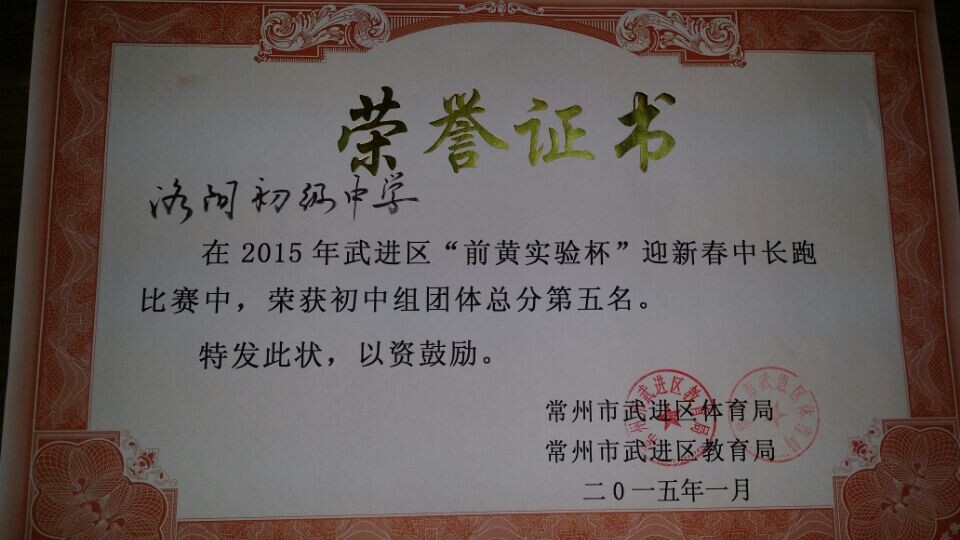 荣誉证书
洛阳初级中学
在2015年武进区“前黄实验杯”迎新春中长跑
比赛中，荣获初中组团体总分第五名。
特发此状，以资鼓励。
常州市武进区体育局
常州市武进区教育局
二0一五年一月